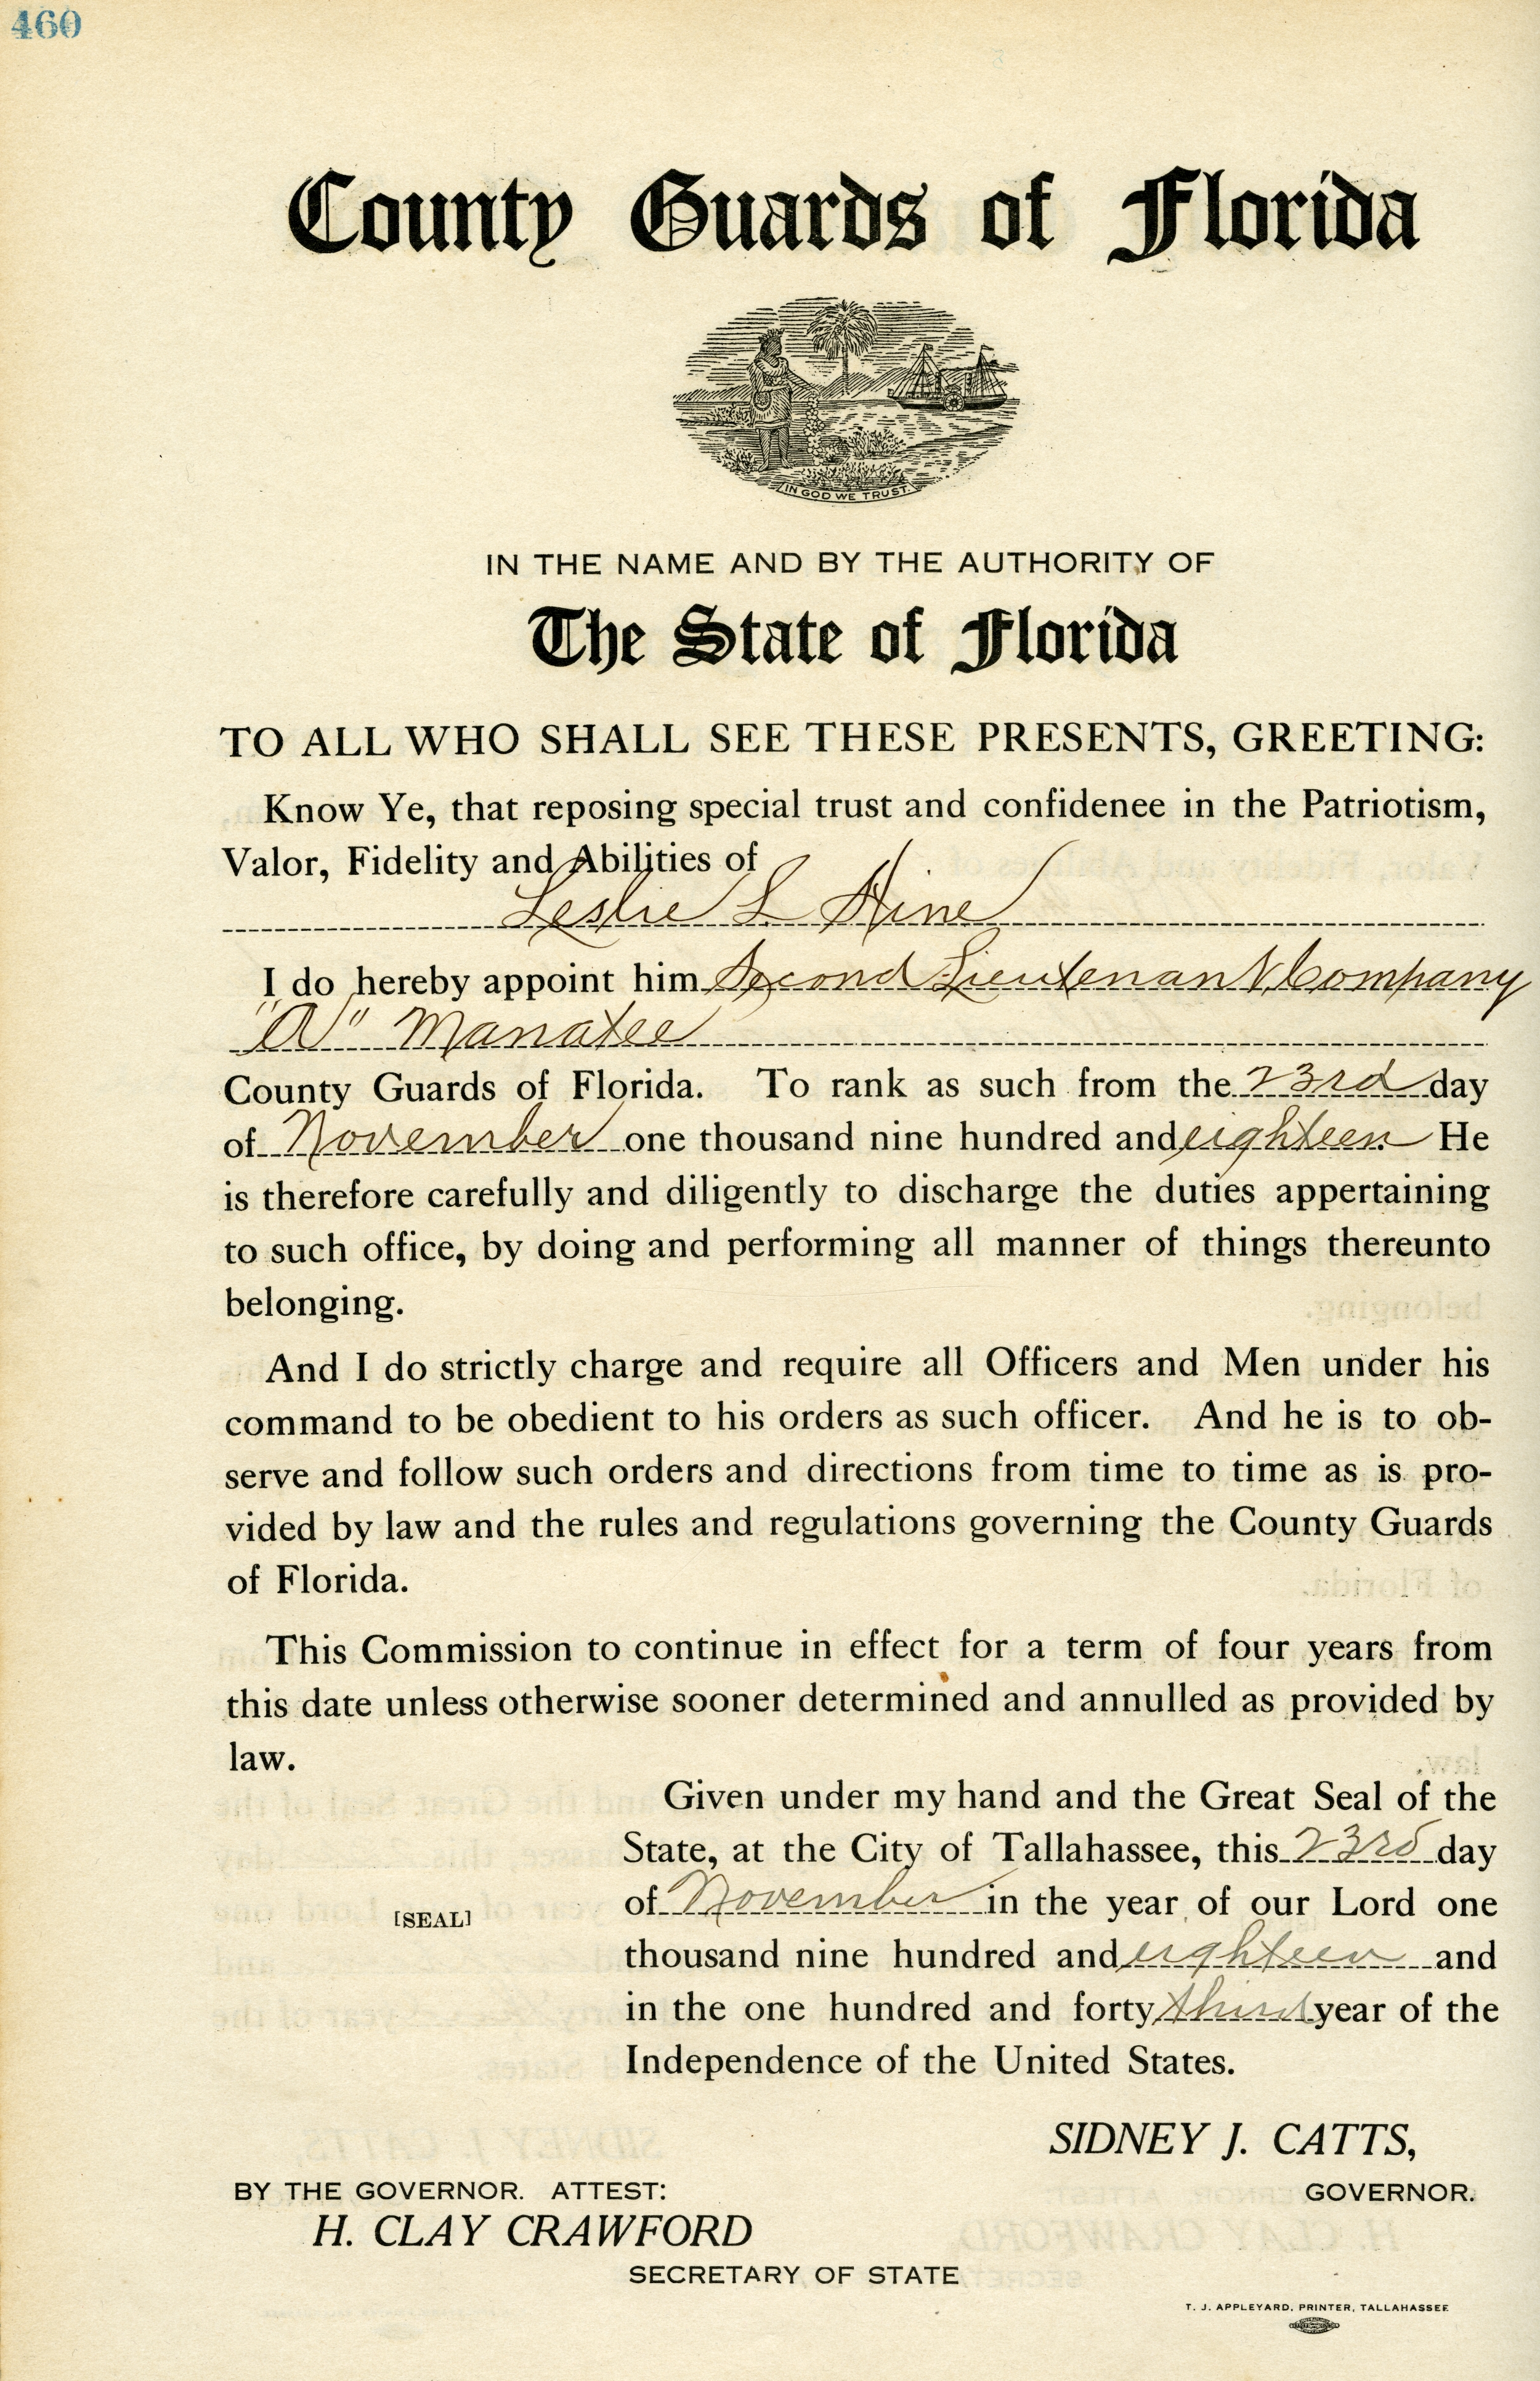 460
County Guards of Florida
IN GOD WE TRUST
IN THE NAME AND BY THE AUTHORITY OF
The State of Florida
TO ALL WHO SHALL SEE THESE PRESENTS, GREETING:
Know Ye, that reposing special trust and confidenee in the Patriotism,
Valor, Fidelity and Abilities of
Leslie L Hine
I do hereby appoint him Second Lieutenant, Company
"A" Manatee
County Guards of Florida. To rank as such from the 23rd day
of November one thousand nine hundred and eighteen. He
is therefore carefully and diligently to discharge the duties appertaining
to such office, by doing and performing all manner of things thereunto
belonging.
And I do strictly charge and require all Officers and Men under his
command to be obedient to his orders as such officer. And he is to ob-
serve and follow such orders and directions from time to time as is pro-
vided by law and the rules and regulations governing the County Guards
of Florida.
This Commission to continue in effect for a term of four years from
this date unless otherwise sooner determined and annulled as provided by
law.
Given under my hand and the Great Seal of the
State, at the City of Tallahassee, this 23rd day
of November in the year of our Lord one
[SEAL]
thousand nine hundred and eighteen and
in the one hundred and forty third year of the
Independence of the United States.
SIDNEY J. CATTS,
GOVERNOR.
BY THE GOVERNOR. ATTEST:
H. CLAY CRAWFORD
SECRETARY OF STATE
T. J. APPLEYARD, PRINTER, TALLAHASSEE